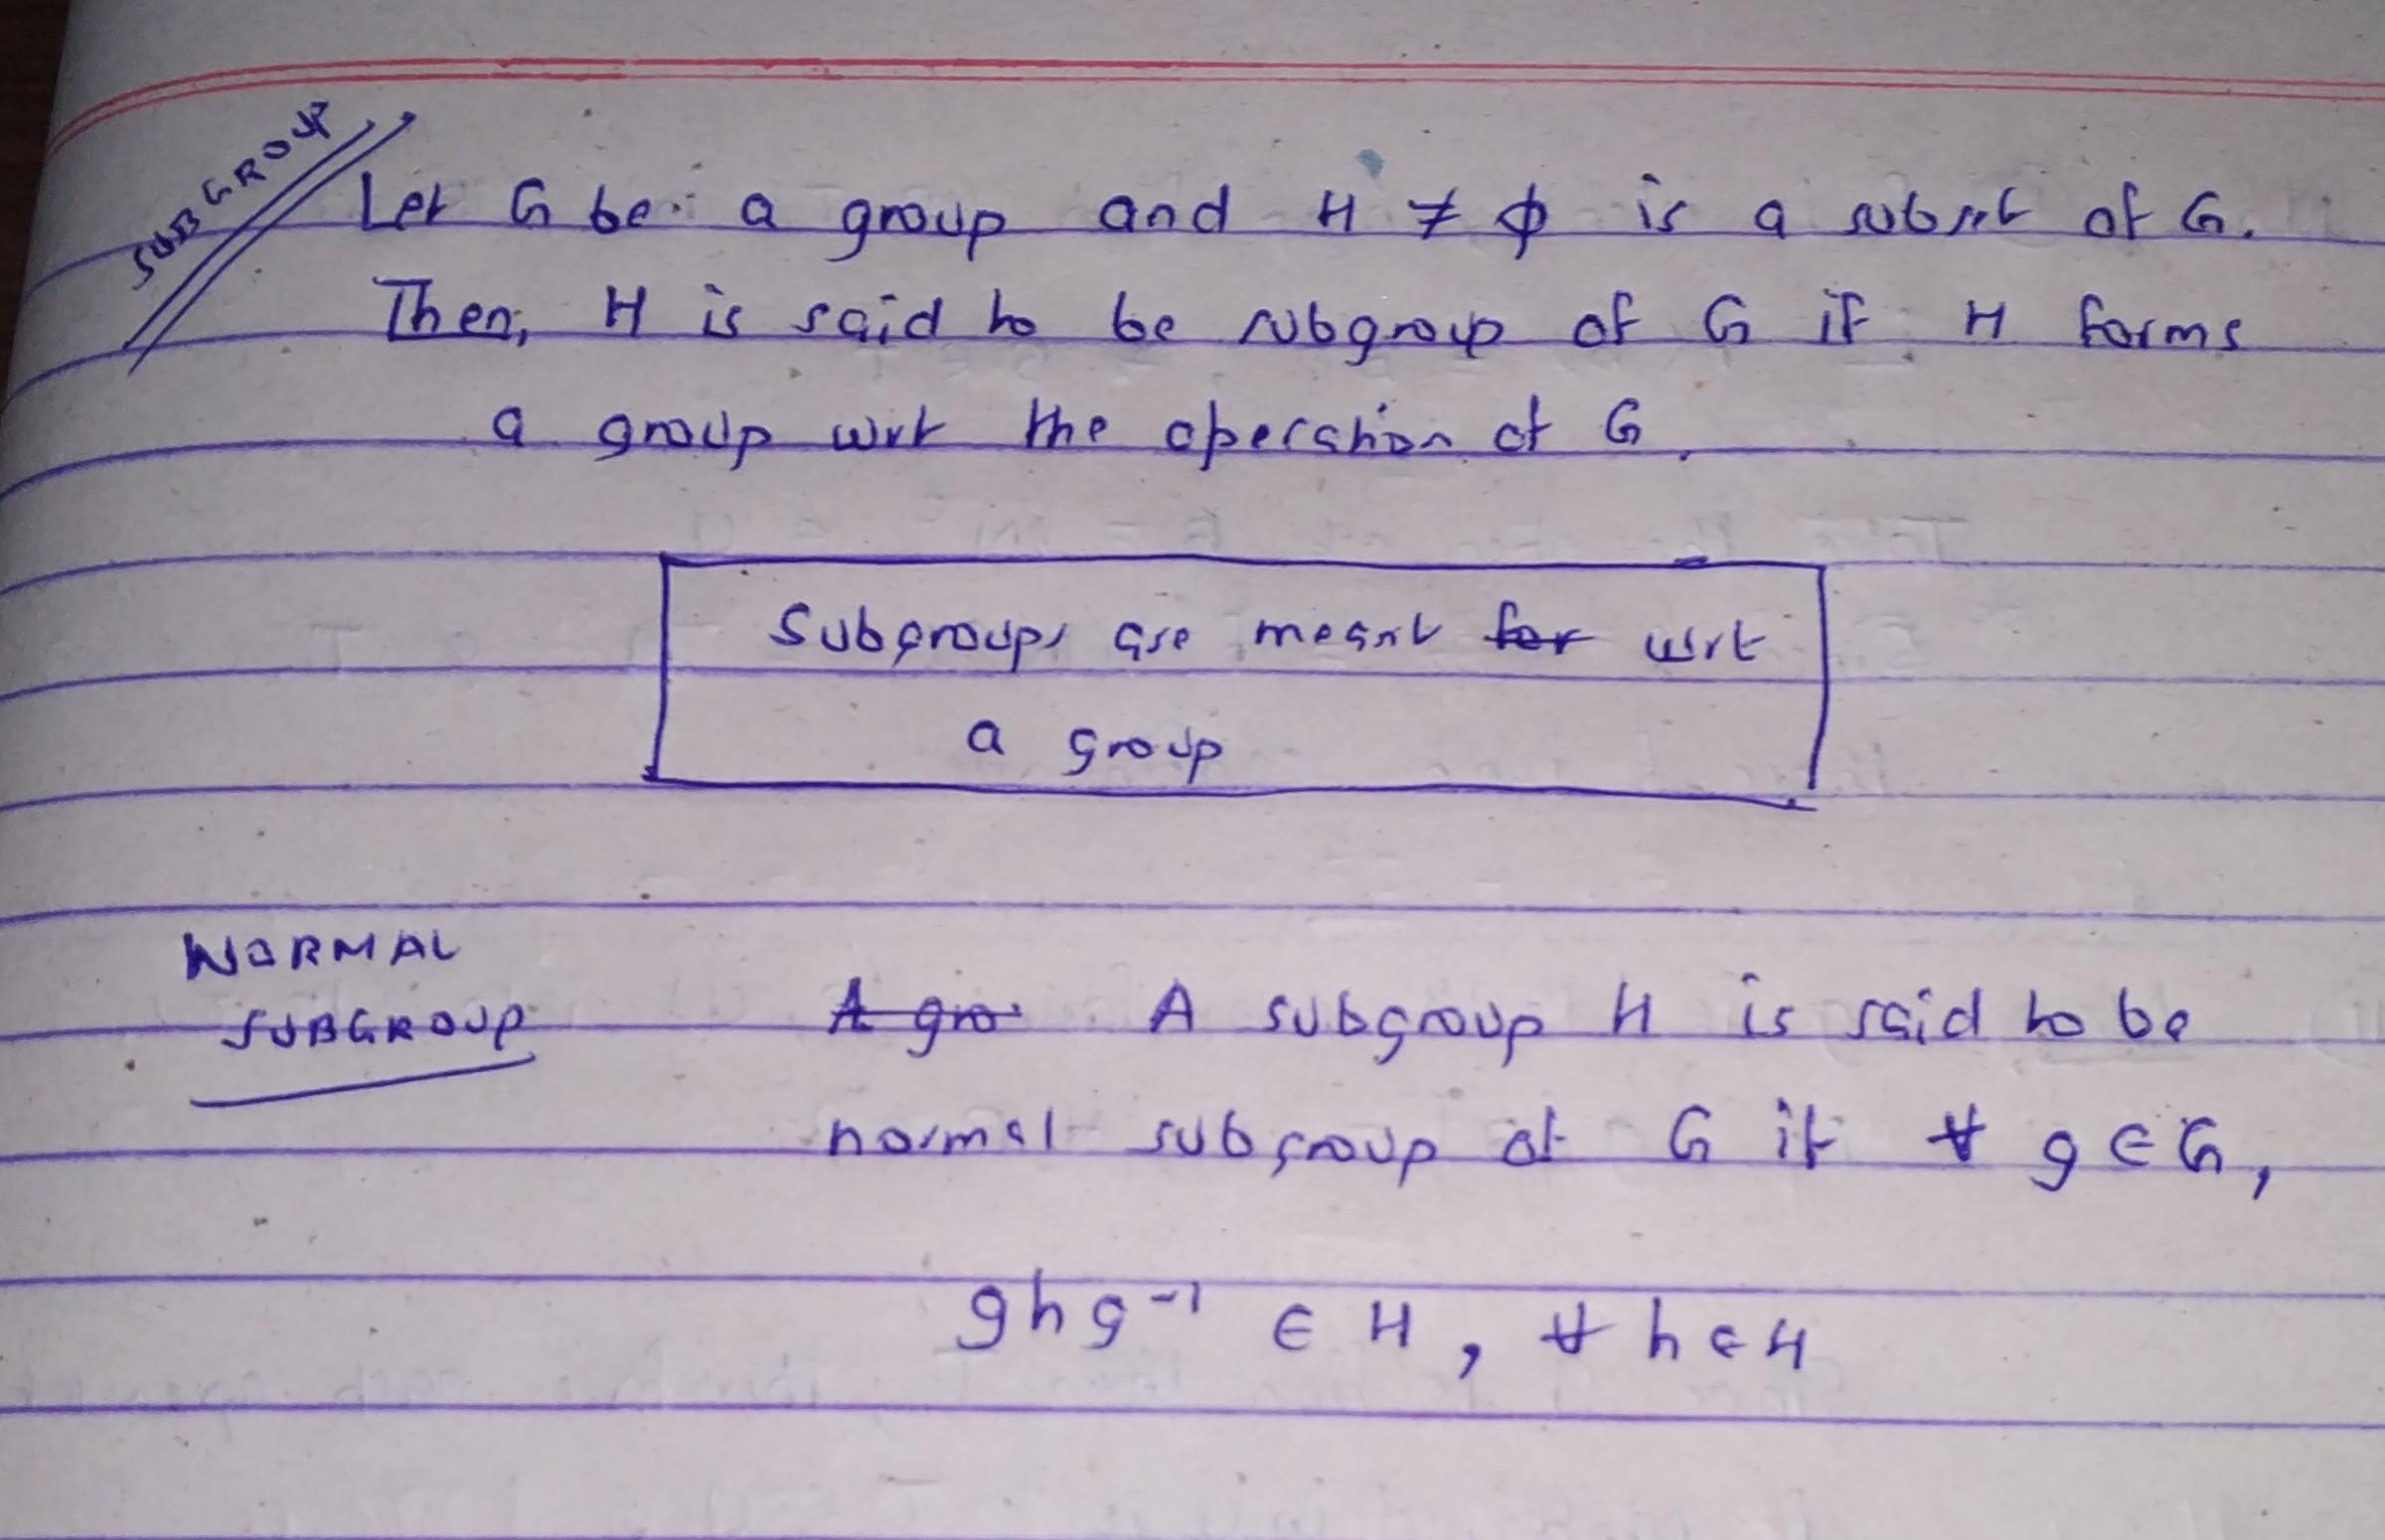 SUBGROUP
Let G be a group and H ≠ ϕ is a subset of G.
Then, H is said to be subgroup of G if H forms
a group wrt the operation of G.
Subgroups are meant for wrt
a group
NORMAL
SUBGROUP
A gro A subgroup H is said to be
normal subgroup of G if ∀ g ∈ G,
ghg⁻¹ ∈ H, ∀ h ∈ H